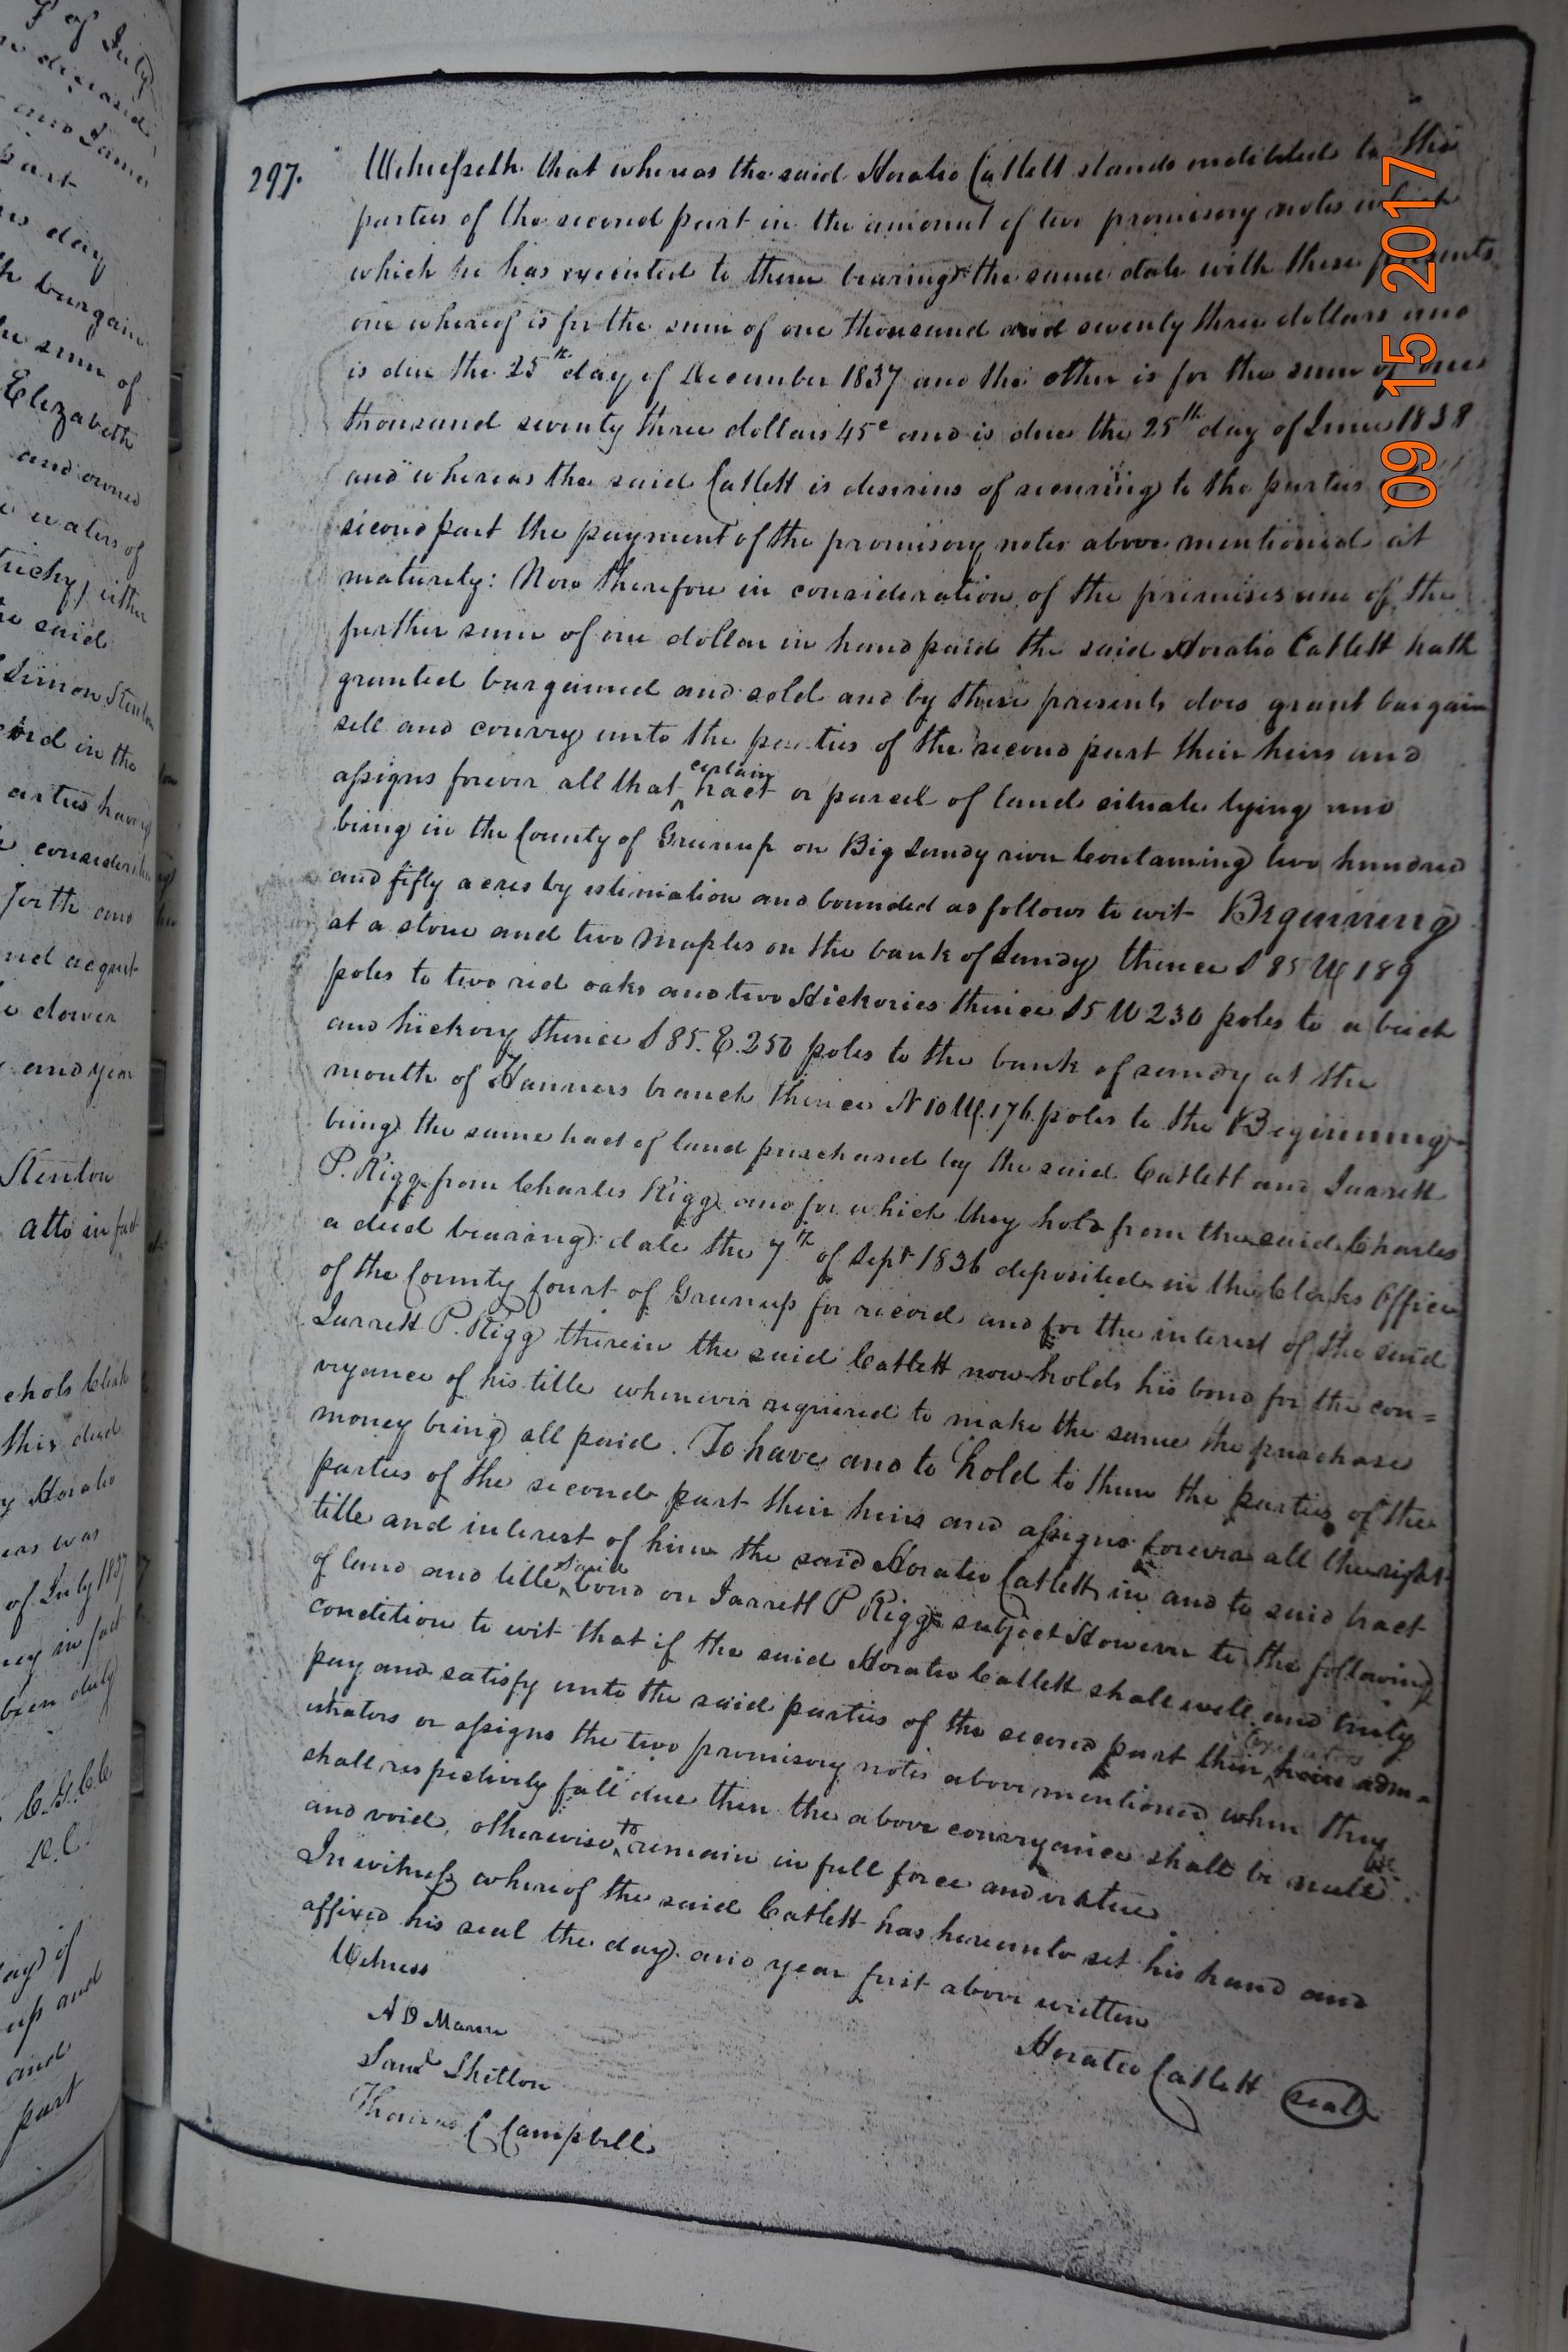 297.
Witnesseth that whereas the said Horatio Catlett stands indebted to the
parties of the second part in the amount of two promisory notes which
which he has executed to them bearing the same date with these presents
one whereof is for the sum of one thousand and seventy three dollars and
is due the 25th day of December 1837 and the other is for the sum of one
thousand seventy three dollars 45c and is due the 25th day of June 1838
and whereas the said Catlett is desirius of securing to the parties of
second part the payment of the promisory notes above mentioned at
maturely: Now therefore in consideration of the primises and of the
further sum of one dollar in hand paid the said Horatio Catlett hath
granted bargained and sold and by these presents does grant bargain
sell and convey unto the parties of the second part their heirs and
assigns forever all that certain tract or parcel of land situate lying and
being in the County of Greenup on Big Sandy river Containing two hundred
and fifty acres by estimation and bounded as follows to wit Beginning
at a stone and two maples on the bank of Sandy thence S 85 W 189
poles to two red oaks and two Hickories thence S5 W 230 poles to a beech
and hickory thence S 85. E. 250 poles to the bank of sandy at the
mouth of Hanners branch thence N 10 W. 176 poles to the Beginning
being the same tract of land purchased by the said Catlett and Jarrett
P. Rigg from Charles Rigg and for which they hold from the said Charles
a deed bearing date the 7th of Sept 1836 deposited in the Clerks Office
of the County Court of Greenup for record and for the interest of the said
Jarrett P. Rigg therein the said Catlett now holds his bond for the con=
veyance of his title whenever required to make the same the purchase
money being all paid. To have and to hold to them the parties of the
parties of the second part their heirs and assigns forever all the right
title and interest of him the said Horatio Catlett in and to said tract
of land and title said bond on Jarrett P Rigg subject However to the following
condition to wit that if the said Horatio Catlett shall well and truly
pay and satisfy unto the said parties of the second part their Executors heirs adm=
istrators or assigns the two promisory notes above mentioned when they
shall respectively fall due then the above conveyance shall be null
and void, otherwise to remain in full force and virtue
In witness whereof the said Catlett has hereunto set his hand and
affixed his seal the day and year first above written
Witness
A D Mann
Saml Shelton
Thomas C Campbell
Horatio Catlett seal
09 15 2017
of July
and James
part
day
bargain
the sum of
Elizabeth
and owned
waters of
either
said
Simon Stenton
in the
parties having
forth and
dower
and year
Stenton
atto in fact
this deed
Horatio
was
of July 1837
in fact
been duly
C.G.C.C
D.C.
day of
and
and
part